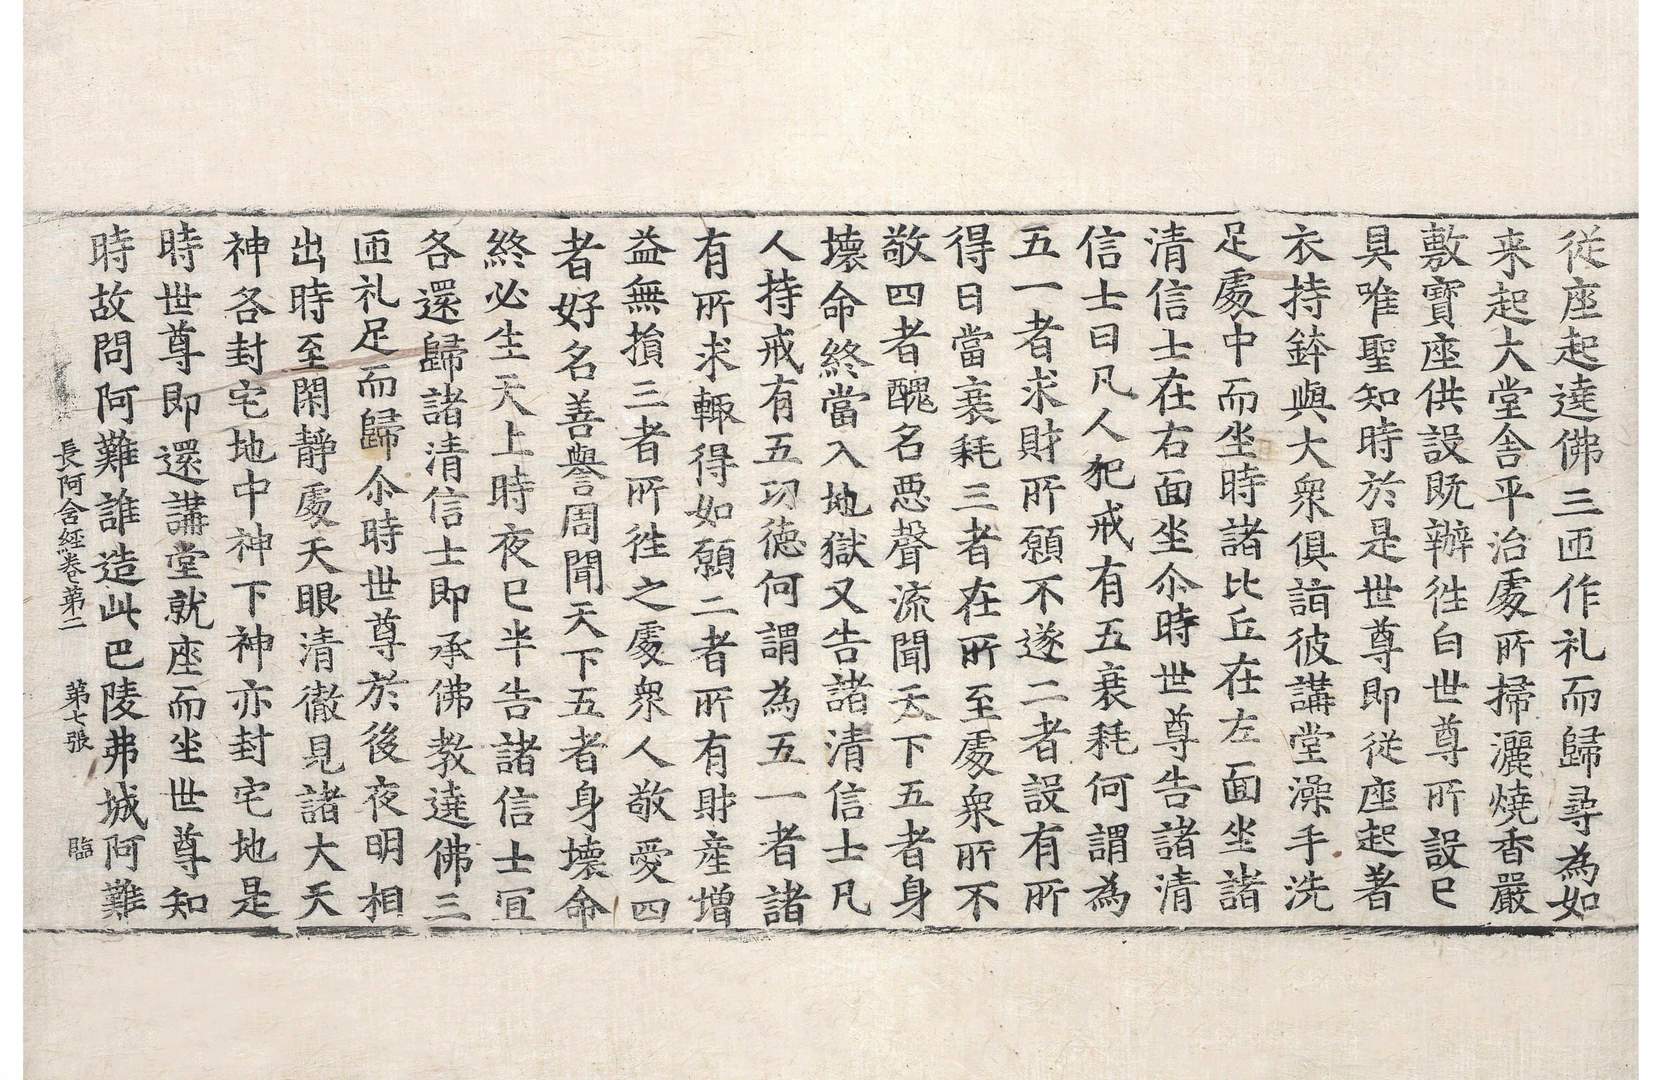 從座起遶佛三匝作礼而歸尋為如
来起大堂舎平治處所掃灑燒香嚴
敷寶座供設既辦徃白世尊所設已
具唯聖知時於是世尊即從座起著
衣持鉢與大衆俱詣彼講堂澡手洗
足處中而坐時諸比丘在左面坐諸
清信士在右面坐尒時世尊告諸清
信士曰凡人犯戒有五衰耗何謂為
五一者求財所願不遂二者設有所
得日當衰耗三者在所至處衆所不
敬四者醜名悪聲流聞天下五者身
壞命終當入地獄又告諸清信士凡
人持戒有五功徳何謂為五一者諸
有所求輙得如願二者所有財産增
益無損三者所徃之處衆人敬愛四
者好名善譽周聞天下五者身壞命
終必生天上時夜已半告諸信士宜
各還歸諸清信士即承佛教遶佛三
匝礼足而歸尒時世尊於後夜明相
出時至閑靜處天眼清徹見諸大天
神各封宅地中神下神亦封宅地是
時世尊即還講堂就座而坐世尊知
時故問阿難誰造此巴陵弗城阿難
長阿含經卷第二 第七張 臨